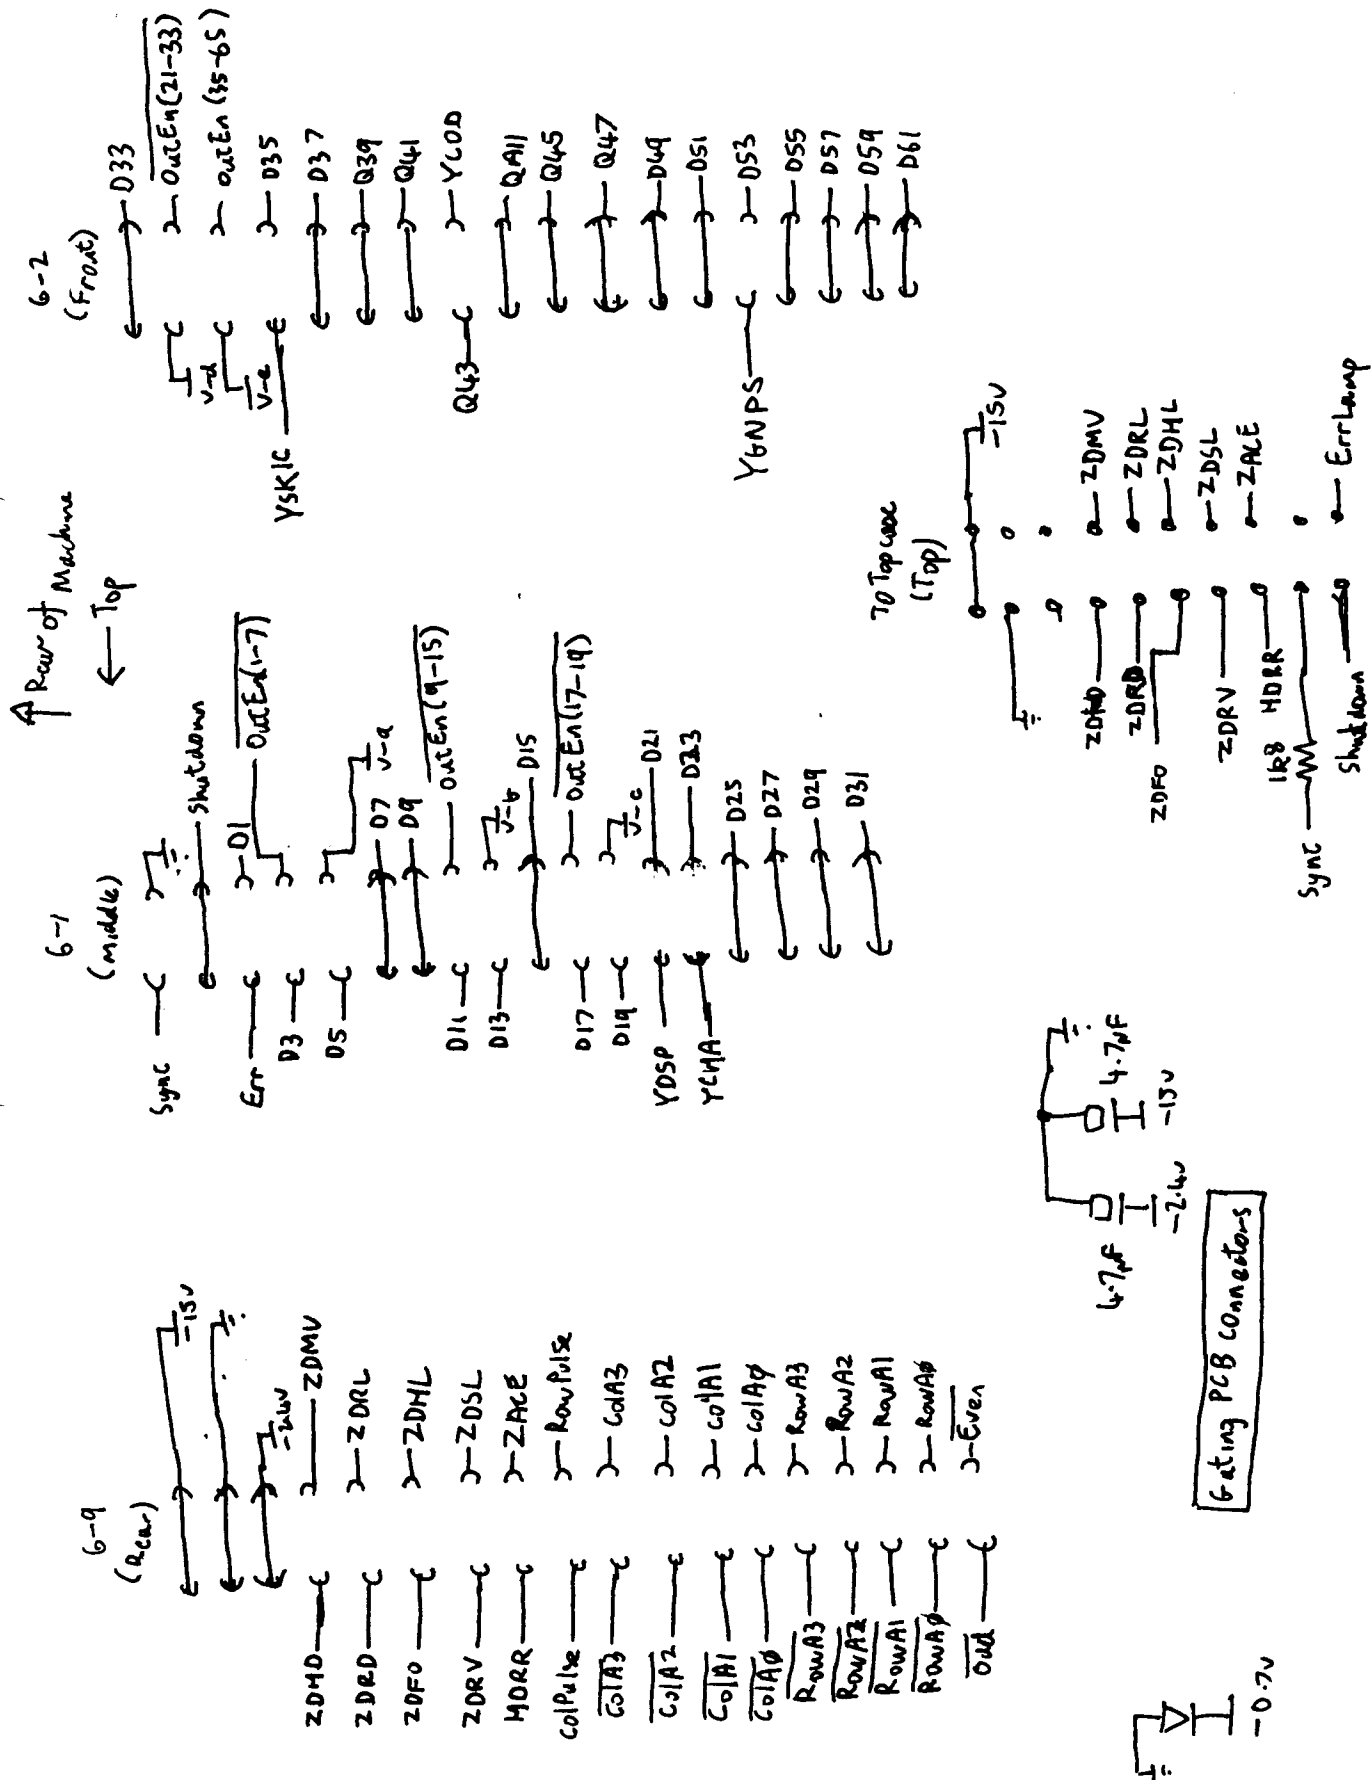 ↑ Rear of Machine
← Top
6-9
(Rear)
-15v
-2.4v
ZDMD ZDMV
ZDRD ZDRL
ZDFO ZDHL
ZDRV ZDSL
MDRR ZACE
ColPulse RowPulse
ColA3 ColA3
ColA2 ColA2
ColA1 ColA1
ColAØ ColAØ
RowA3 RowA3
RowA2 RowA2
RowA1 RowA1
RowAØ RowAØ
Odd Even
6-1
(Middle)
Sync
Shutdown
Err D1
D3 OutEn(1-7)
D5 V-a
D7
D9
D11 OutEn(9-15)
D13 V-b
D15
D17 OutEn(17-19)
D19 V-c
YDSP D21
YCHA D23
D25
D27
D29
D31
6-2
(Front)
D33
V-d OutEn(21-33)
V-e OutEn(35-65)
YSKIC D35
D37
Q39
Q41
Q43 YLOD
QA11
Q45
Q47
D49
D51
YGNPS D53
D55
D57
D59
D61
-0.7v
4.7µF
-2.4v
4.7µF
-15v
To Topcode
(Top)
-15v
ZDMD ZDMV
ZDRD ZDRL
ZDFO ZDHL
ZDRV ZDSL
MDRR ZACE
Sync 1k8
Shutdown ErrLamp
Gating PCB Connectors